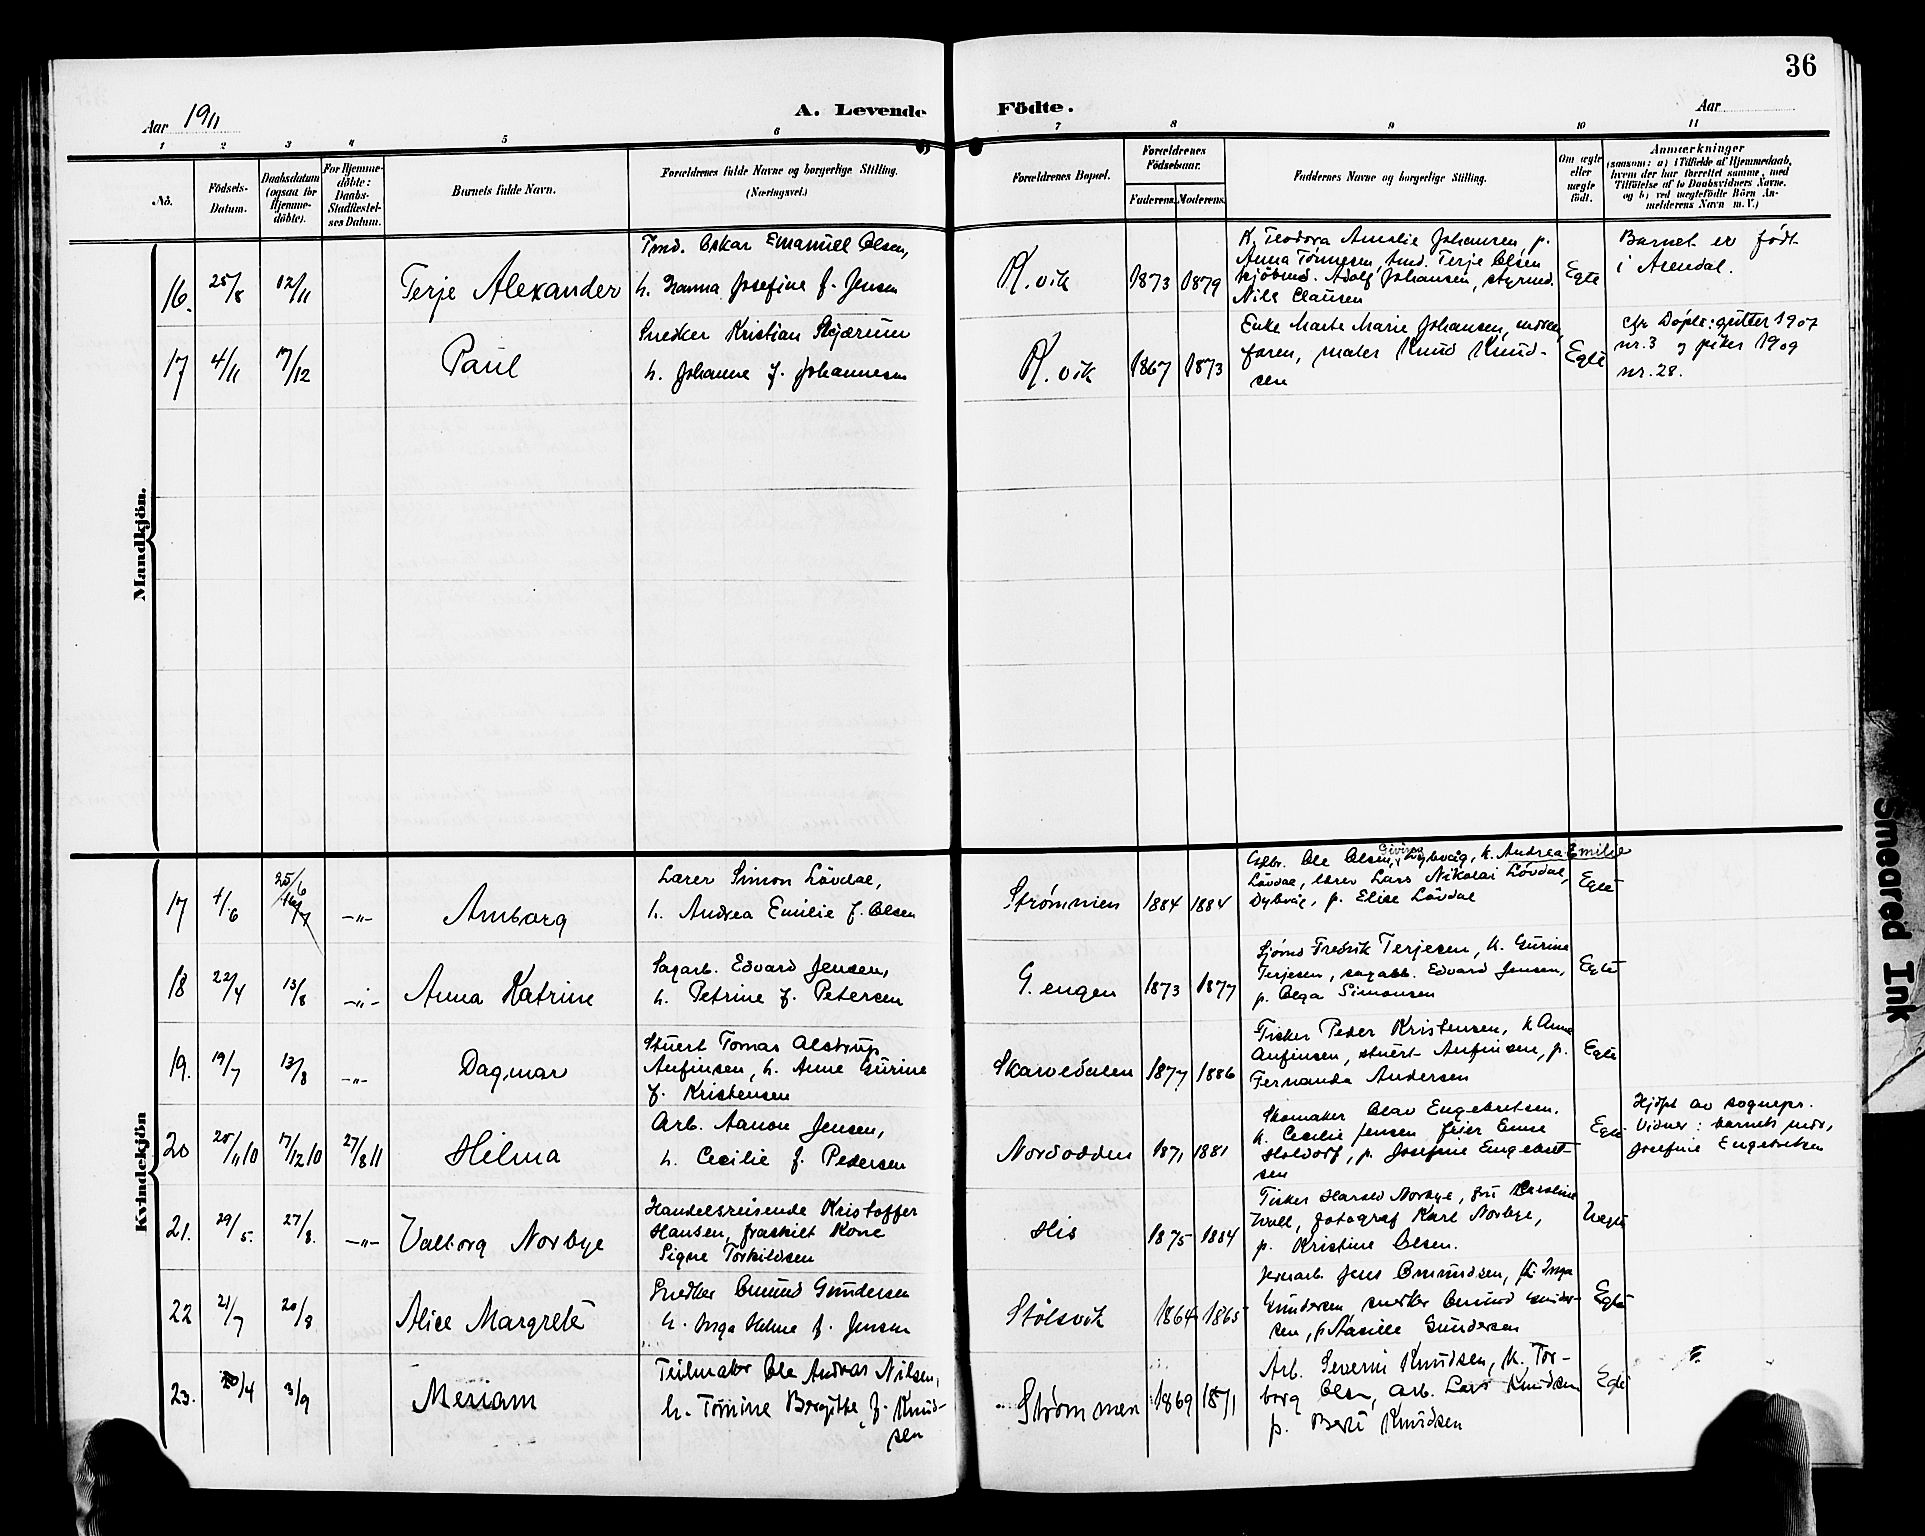 36
Aar 1911
A. Levende Födte.
Aar
1 2 3 4 5 6 7 8 9 10 11
No.
Födsels-Datum.
Daabsdatum (ogsaa for Hjemme-döbte).
For Hjemme-döbte: Daabs-Stadfæstel-ses Datum.
Barnets fulde Navn.
Forældrenes fulde Navne og borgerlige Stilling. (Næringsvei.)
Forældrenes Bopæl.
Forældrenes Födselsaar.
Faderens. Moderens.
Faddernes Navne og borgerlige Stilling.
Om ægte eller uægte født.
Anmærkninger
(saasom: a) i Tilfælde af Hjemmedaab,
hvem der har forrettet samme, med
Tilföielse af to Daabsvidners Navne,
og b) ved uægtefödte Börn An-
melderens Navn m. V.)
Mandkjön.
16. 25/8 12/11
Terje Alexander
Tmd. Oskar Emanuel Olsen,
h. Hanna Josefine f. Jensen
K.vik
1873 1879
K. Teodora Amalie Johansen, p.
Anna Tönnesen, tmd. Terje Olsen
skjöbmd. Adolf Johansen, styrmd.
Nils Clausen
Egte
Barnet er født
i Arendal.
17 4/11 17/12
Paul
Snedker Kristian Skjærum
h. Johanne f. Johannesen
K.vik
1867 1873
Enke Marte Marie Johansen, moren,
faren, maler Knud Knud-
sen
Egte
cfr Döpte: gutter 1907
nr. 3 og piker 1909
nr. 28.
Kvindekjön
17 1/6 25/6 16/7 -"-
Arnborg
Lærer Simon Lövdal,
h. Andrea Emilie f. Olsen
Strømmen
1884 1884
Ole Olsen, Dybvåg, k. Andrea Emilie
Lövdal, lærer Lars Nikolai Lövdal,
Dybvåg, p. Elise Lövdal
Egte
18 22/4 13/8 -"-
Anna Katrine
Sagarb. Edvard Jensen,
h. Petrine f. Petersen
G. engen
1873 1877
Sjömd Fredrik Terjesen, k. Gurine
Terjesen, sagarb. Edvard Jensen,
p. Olga Simonsen
Egte
19. 19/7 13/8 -"-
Dagmar
Stuert Tomas Alstrup
Anfinsen, h. Anne Gurine
f. Kristensen
Skarvedalen
1877 1886
Fisker Peder Kristensen, k Anne
Anfinsen, stuert Anfinsen, p.
Fernanda Andersen
Egte
20 25/11 10 17/12 10 27/8 11
Hilma
Arb. Aanon Jensen,
h. Cecilie f. Pedersen
Nordodden
1871 1881
Skomaker Olav Engebretsen.
k. Cecilie Jensen, feier Emne
Holdorf, p. Josefine Engebret-
sen
Egte
Hjdpt av sognepr.
Vidner: barnets mor,
Josefine Engebretsen
21. 29/5. 27/8. -"-
Valborg Norbye
Handelsreisende Kristoffer
Hansen, fraskilt Kone
Signe Torkildsen
His
1875 1884
Fisker Harald Norbye, fru Karoline
Wull, fotograf Karl Norbye,
p. Kristine Olsen.
Uegte
22 21/7 20/8
Alice Margrete
Snedker Omund Gundersen
h. Inga Helene f. Jensen
Stølsvik
1864 1865
Jernarb. Jens Omundsen, k. Inga
Gundersen, snedker Omund Gunder-
sen, p. Aasille Gundersen
Egte
23. 20/4 3/9
Meriam
Seilmaker Ole Andreas Nilsen,
h. Tomine Birgitte, f. Knud-
sen
Strømmen
1869 1871
Arb. Severin Knudsen, k. Tor-
borg Olsen, arb. Lars Knudsen
p. Berte Knudsen
Egte
Smeared Ink